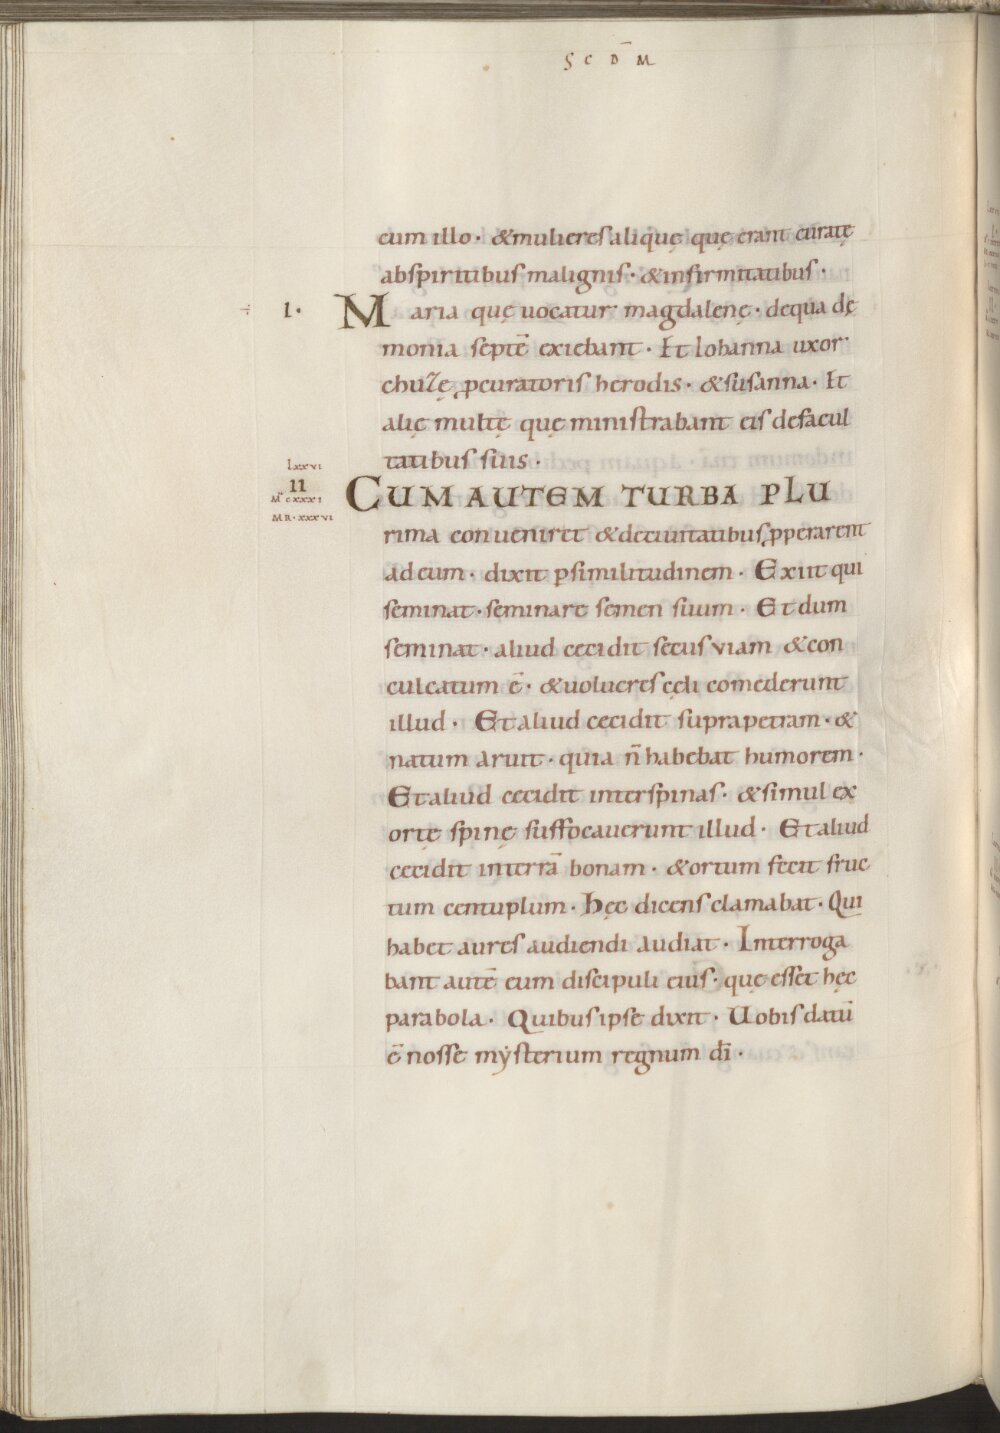 SCD̄M
cum illo · & mulieres aliquę quę erant curatę
ab spiritibus malignis · & infirmitatibus ·
I· Maria quę uocatur magdalenę · de qua dę
monia septē exiebant · Et Iohanna uxor
chuzę ꝓcuratoris herodis · & susanna · Et
alię multę quę ministrabant eis de facul
tatibus suis ·
lxxvi
II
MT cxxxi
MR · xxxvi
CUM AUTEM TURBA PLU
rima conueniret & de ciuitatibus ꝓperarent
ad eum · dixit ꝑ similitudinem · Exiit qui
seminat · seminare semen suum · Et dum
seminat · aliud cecidit secus viam & con
culcatum ē · & uolucres cęli comederunt
illud · Et aliud cecidit supra petram · &
natum aruit · quia n̄ habebat humorem ·
Et aliud cecidit inter spinas · & simul ex
ortę spinę suffocauerunt illud · Et aliud
cecidit in terrā bonam · & ortum fecit fruc
tum centuplum · Hęc dicens clamabat · Qui
habet aures audiendi audiat · Interroga
bant autē eum discipuli eius · quę esset hęc
parabola · Quibus ipse dixit · Uobis datū
ē nosse mẏsterium regnum dī ·